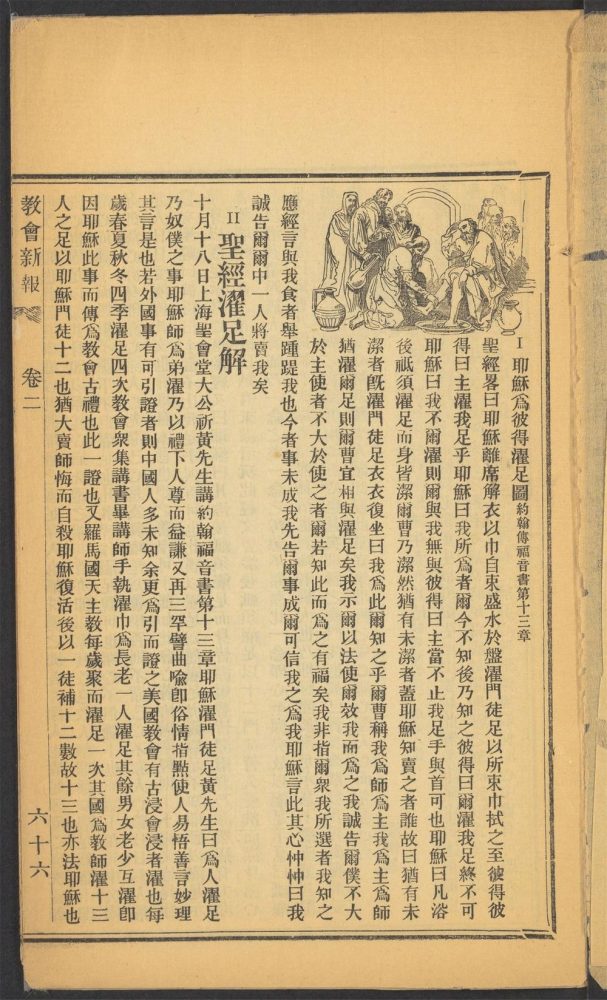 I 耶穌爲彼得濯足圖 約翰傳福音書第十三章
聖經畧曰耶穌離席解衣以巾自束盛水於盤濯門徒足以所束巾拭之至彼得彼
得曰主濯我足乎耶穌曰我所爲者爾今不知後乃知之彼得曰爾濯我足終不可
耶穌曰我不爾濯則爾與我無與彼得曰主當不止我足手與首可也耶穌曰凡浴
後祇須濯足而身皆潔爾曹乃潔然猶有未潔者蓋耶穌知賣之者誰故曰猶有未
潔者旣濯門徒足衣衣復坐曰我爲此爾知之乎爾曹稱我爲師爲主我爲主爲師
猶濯爾足則爾曹宜相與濯足矣我示爾以法使爾效我而爲之我誠告爾僕不大
於主使者不大於使之者爾若知此而爲之有福矣我非指爾衆我所選者我知之
應經言與我食者舉踵踶我也今者事未成我先告爾事成爾可信我之爲我耶穌言此其心忡忡曰我
誠告爾爾中一人將賣我矣
II 聖經濯足解
十月十八日上海聖會堂大公祈黃先生講約翰福音書第十三章耶穌濯門徒足黃先生曰爲人濯足
乃奴僕之事耶穌師爲弟濯乃以禮下人尊而益謙又再三罕譬曲喩卽俗情指點使人易悟善言妙理
其言是也若外國事有可引證者則中國人多未知余更爲引而證之美國教會有古浸會浸者濯也每
歲春夏秋冬四季濯足四次教會衆集講書畢講師手執濯巾爲長老一人濯足其餘男女老少互濯卽
因耶穌此事而傳爲教會古禮也此一證也又羅馬國天主教每歲聚而濯足一次其國爲教師濯十三
人之足以耶穌門徒十二也猶大賣師悔而自殺耶穌復活後以一徒補十二數故十三也亦法耶穌也
教會新報 卷二 六十六